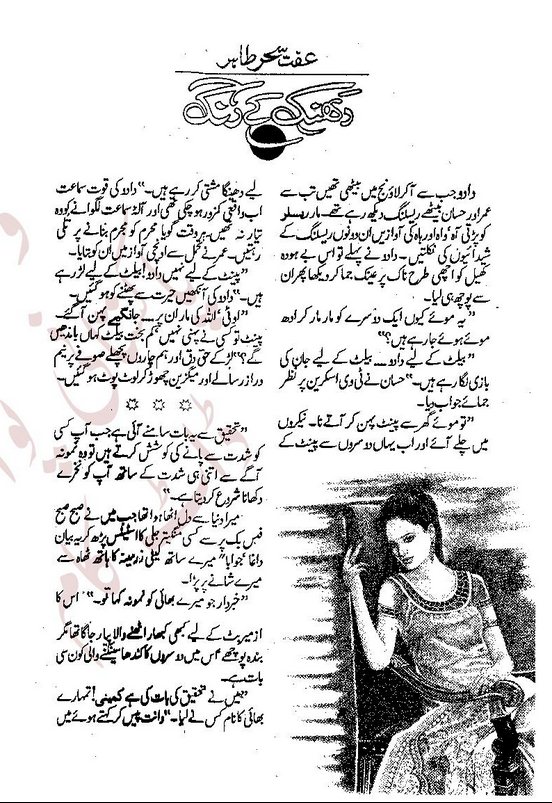 عفت سحر طاہر
دھنک کے رنگ
دادو جب سے آکر لاؤنج میں بیٹھی تھیں تب سے
عمر اور حسان بیٹھے ریسلنگ دیکھ رہے تھے۔ مار ریسلر
کو پڑتی آہ واہ اور ہاہ کی آوازیں ان دونوں ریسلنگ کے
شیدائیوں کی نکلتیں۔ دادو نے پہلے تو اس بے ہودہ
کھیل کو اچھی طرح ناک پر عینک جما کر دیکھا پھر ان
سے پوچھ ہی لیا۔
”یہ موئے کیوں ایک دوسرے کو مار مار کر ادھ
موئے ہوئے جا رہے ہیں؟“
”بیلٹ کے لیے دادو.... بیلٹ کے لیے جان کی
بازی لگا رہے ہیں۔“ حسان نے ٹی وی اسکرین پر نظر
جمائے جواب دیا۔
”تو موئے گھر سے پینٹ پہن کر آتے نا۔ نیکروں
میں چلے آئے اور اب یہاں دوسروں سے پینٹ کے
لیے دھینگا مشتی کر رہے ہیں۔“ دادو کی قوت سماعت
اب واقعی کمزور ہو چکی تھی اور آلہ سماعت لگوانے کو وہ
تیار نہ تھیں۔ ہر وقت گویا محرم کو مجرم بنانے پر تلی
رہتیں۔ عمر نے تحمل سے اونچی آواز میں ان کو بتایا۔
”پینٹ کے لیے نہیں دادو! بیلٹ کے لیے لڑ رہے
ہیں۔“ دادو کی آنکھیں حیرت سے پھٹنے کو ہو گئیں۔
”اوئی اللہ کی مار ان پر.... جانگھیے پہن آ گئے۔
پینٹ تو کسی نے پہنی نہیں کم بخت بیلٹ کہاں باندھیں
گے؟“ لڑکے حق دق اور ہم چاروں پچھلے صوفے پر نیم
دراز رسالے اور میگزین چھوڑ کر لوٹ پوٹ ہو گئیں۔
☼ ☼ ☼
”تحقیق سے یہ بات سامنے آئی ہے جب آپ کسی
کو شدت سے پانے کی کوشش کرتے ہیں تو وہ نمونہ
آگے سے اتنی ہی شدت کے ساتھ آپ کو نخرے
دکھانا شروع کر دیتا ہے۔“
میرا دنیا سے دل اٹھا ہوا تھا جب میں نے صبح صبح
فیس بک پر سے کسی منگیتر جلی کا اسٹیٹس پڑھ کر یہ بیان
داغا تو میرے ساتھ لیٹی زرمینہ کا ہاتھ ٹھاہ سے
میرے شانے پر پڑا۔
”خبردار جو میرے بھائی کو نمونہ کہا تو۔“ اس کا
ازمیر بٹ کے لیے کبھی کبھار اٹھنے والا پیار جاگا تھا مگر
بندہ پوچھے اس میں دوسروں کا کندھا سینکنے والی کون سی
بات ہے۔
”میں نے تحقیق کی بات کی ہے کمینی! تمہارے
بھائی کا نام کس نے لیا۔“ دانت پیس کر کہتے ہوئے میں